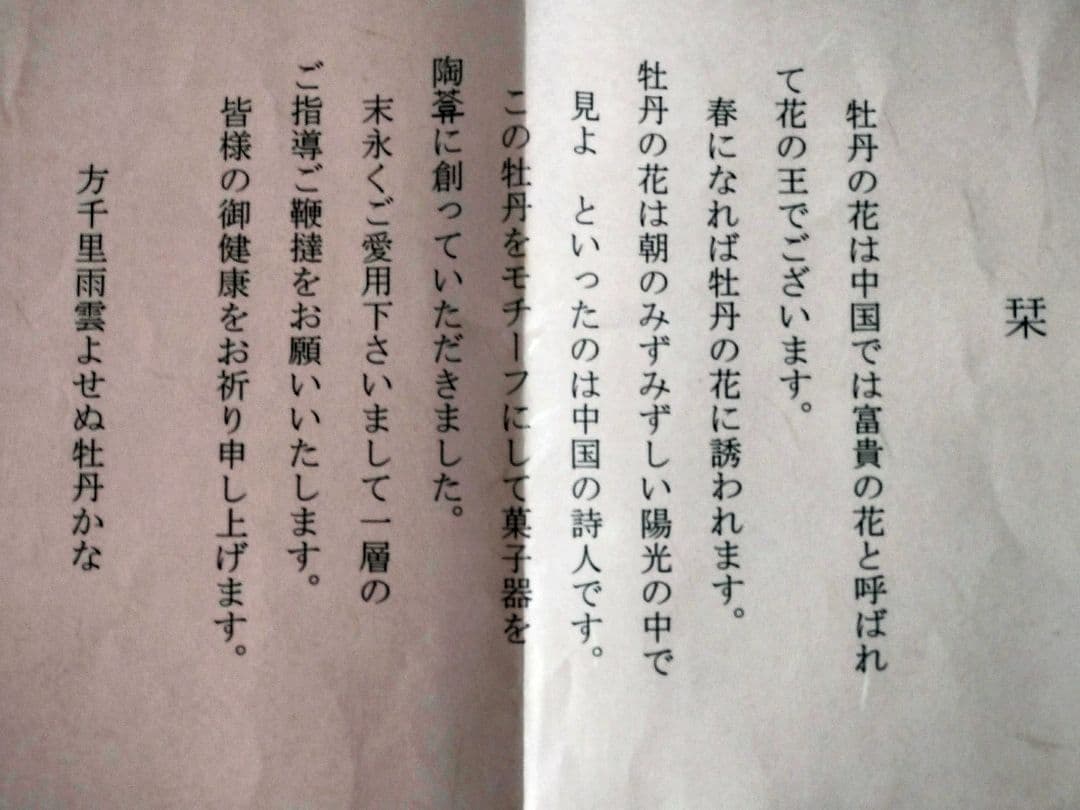 栞
牡丹の花は中国では富貴の花と呼ばれ
て花の王でございます。
春になれば牡丹の花に誘われます。
牡丹の花は朝のみずみずしい陽光の中で
見よ　といったのは中国の詩人です。
この牡丹をモチーフにして菓子器を
陶葊に創っていただきました。
末永くご愛用下さいまして一層の
ご指導ご鞭撻をお願いいたします。
皆様の御健康をお祈り申し上げます。
方千里雨雲よせぬ牡丹かな